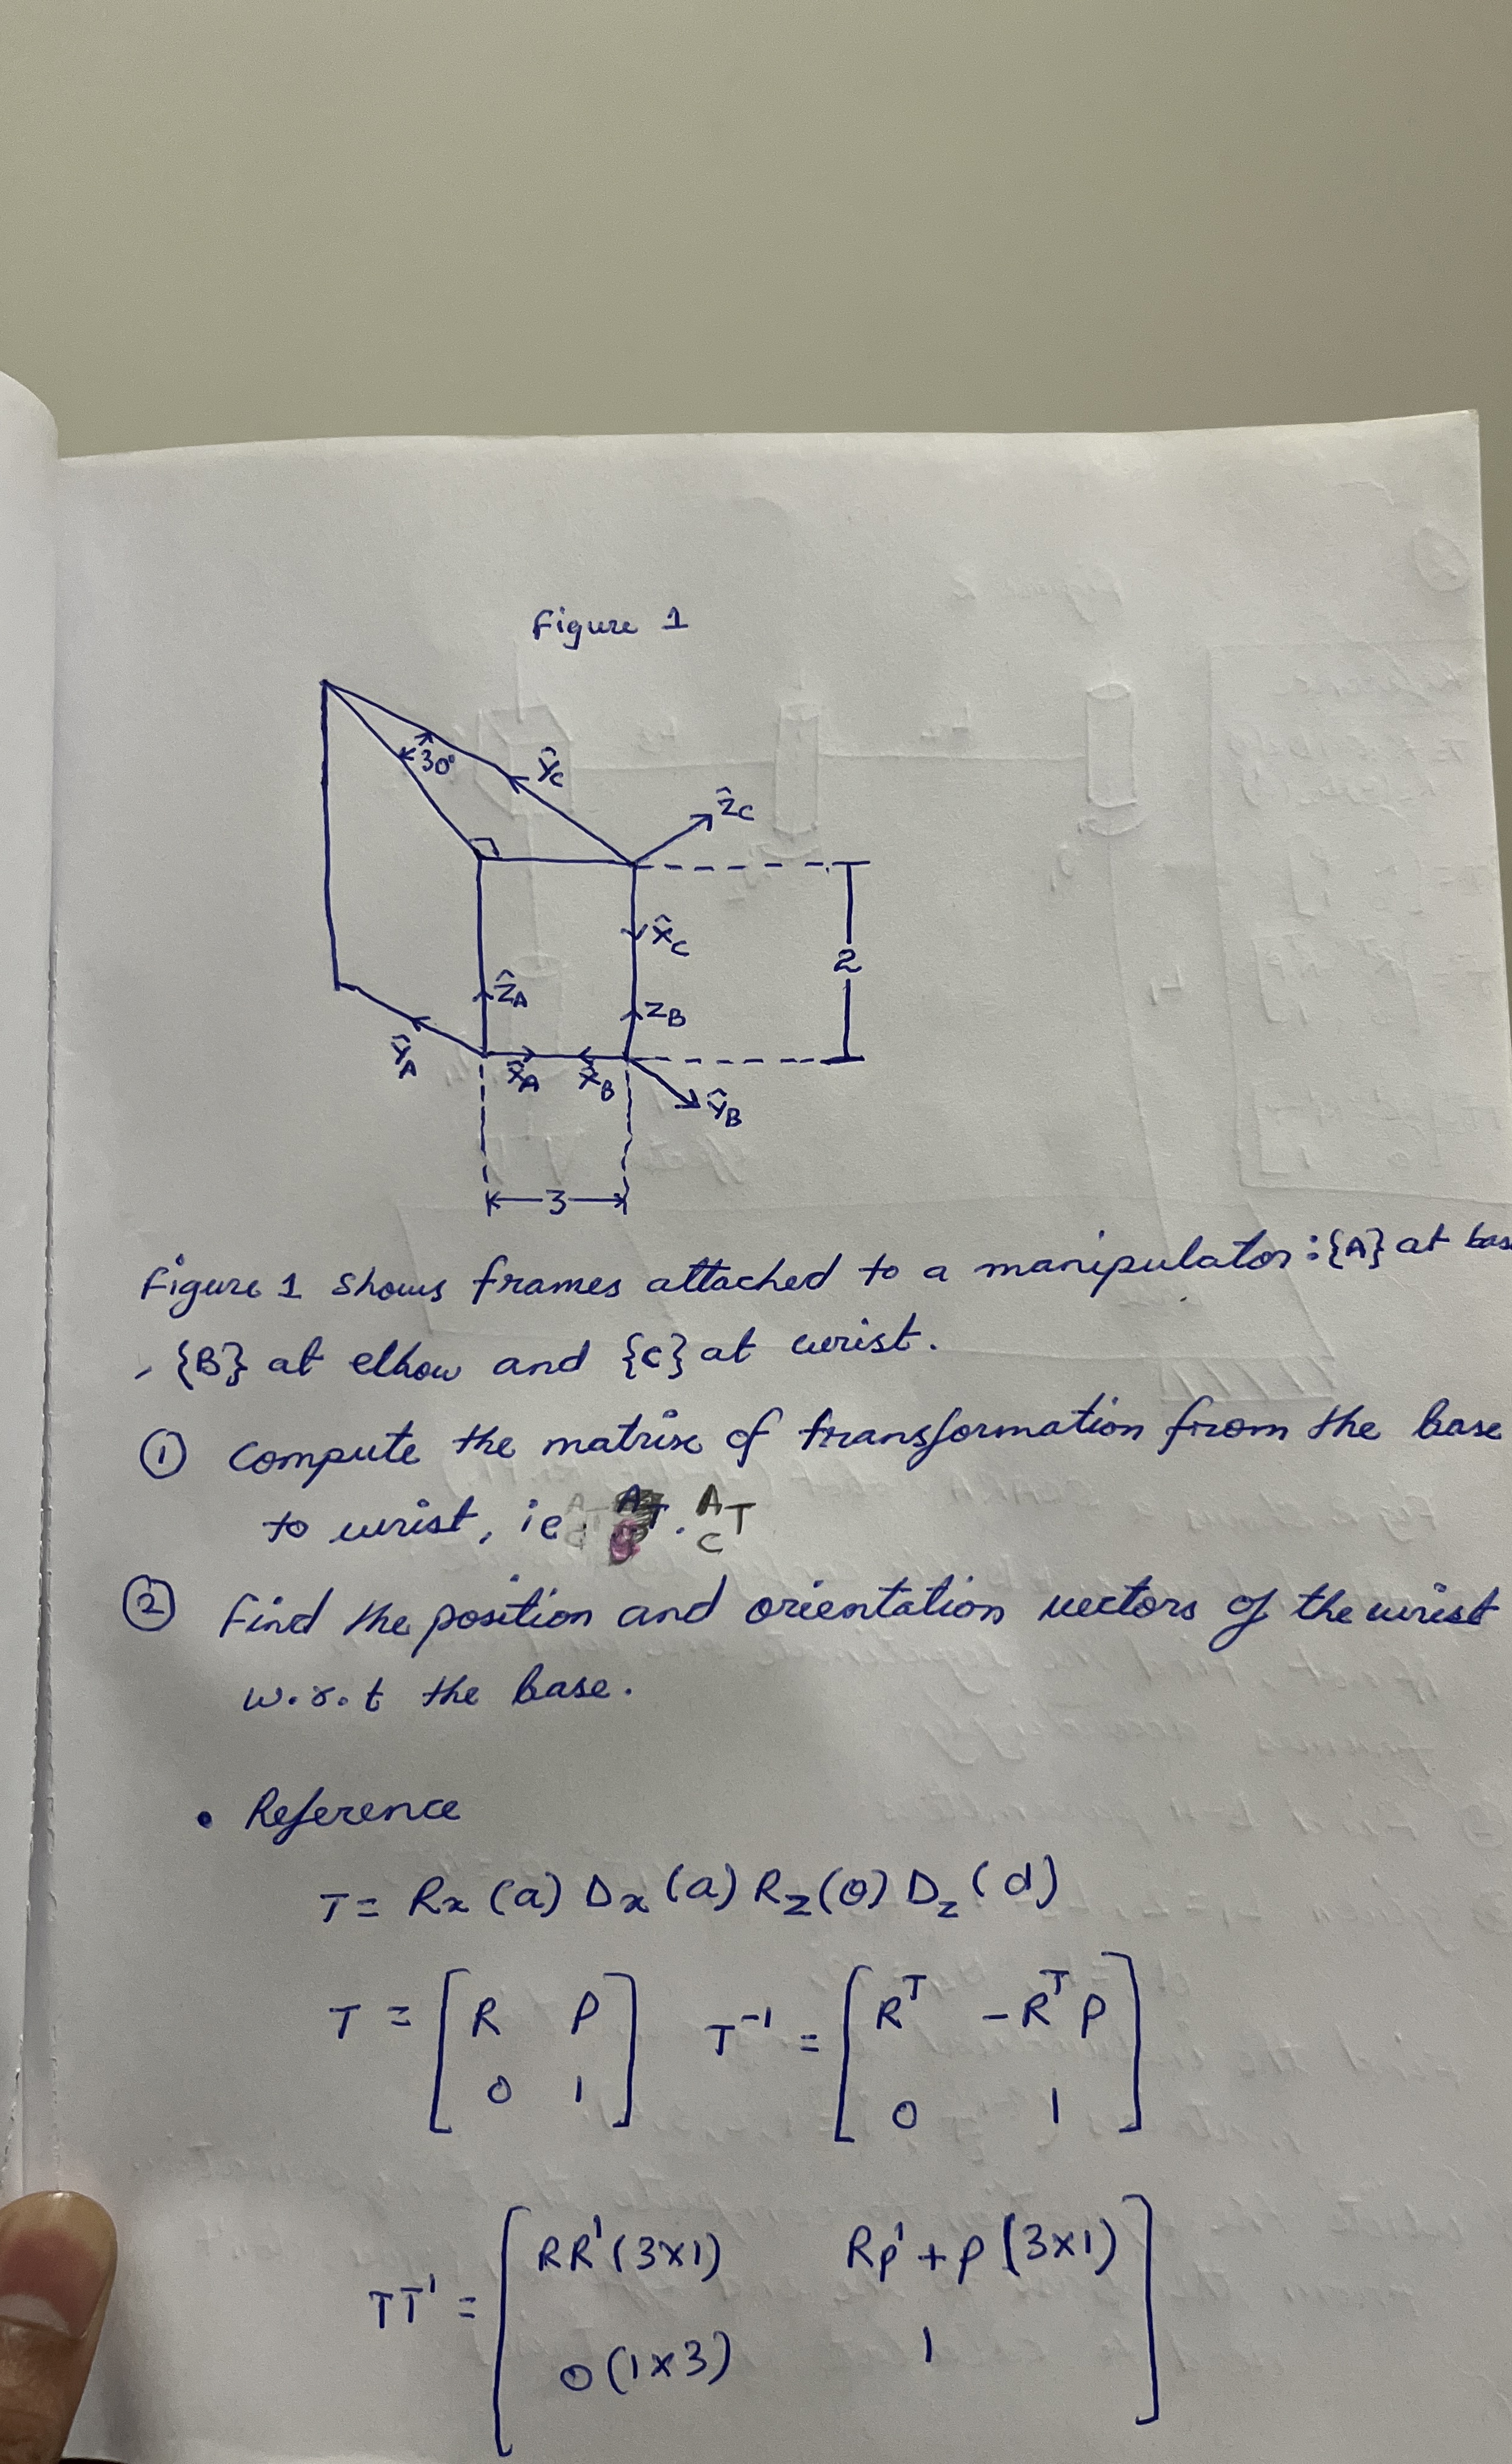 Figure 1
30°
ŶC
ẐC
X̂C
2
ẐA
ZB
ŶA
X̂A
X̂B
ŶB
3
Figure 1 shows frames attached to a manipulator: {A} at bas
, {B} at elbow and {C} at wrist.
① Compute the matrix of transformation from the base
to wrist, ie. A C T
② Find the position and orientation vectors of the wrist
w.r.t the base.
• Reference
T = Rx (a) Dx (a) Rz (θ) Dz (d)
T = [ R P
0 1 ]
T⁻¹ = [ Rᵀ -Rᵀ P
0 1 ]
TT' = [ RR' (3x1) Rp' + p (3x1)
0 (1x3) 1 ]